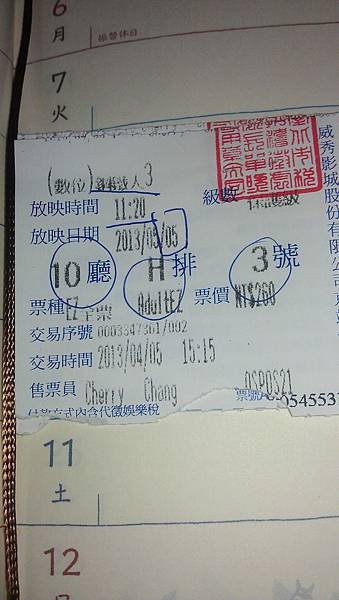 6
月
振替休日
7
火
(數位) 鋼鐵人3
級數
放映時間 11:20
放映日期 2013/05/05
10廳 H排 3號
票種EZ全票 AdultEZ 票價 NT$260
交易序號 0003347361/002
交易時間 2013/04/05 15:15
售票員 Cherry Chang OSPOS21
付款方式內含代徵娛樂稅
威秀影城股份有限公司
11
土
12